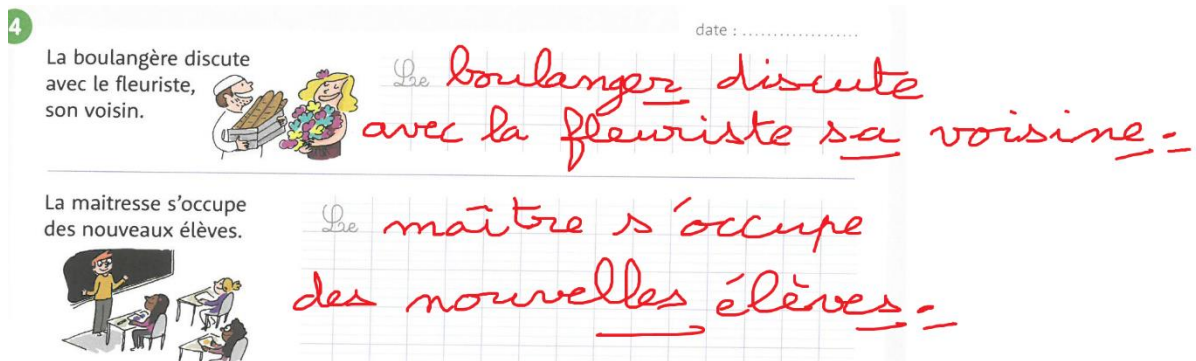 4
date : ...................
La boulangère discute
avec le fleuriste,
son voisin.
Le boulanger discute
avec la fleuriste sa voisine.
La maitresse s'occupe
des nouveaux élèves.
Le maître s'occupe
des nouvelles élèves.